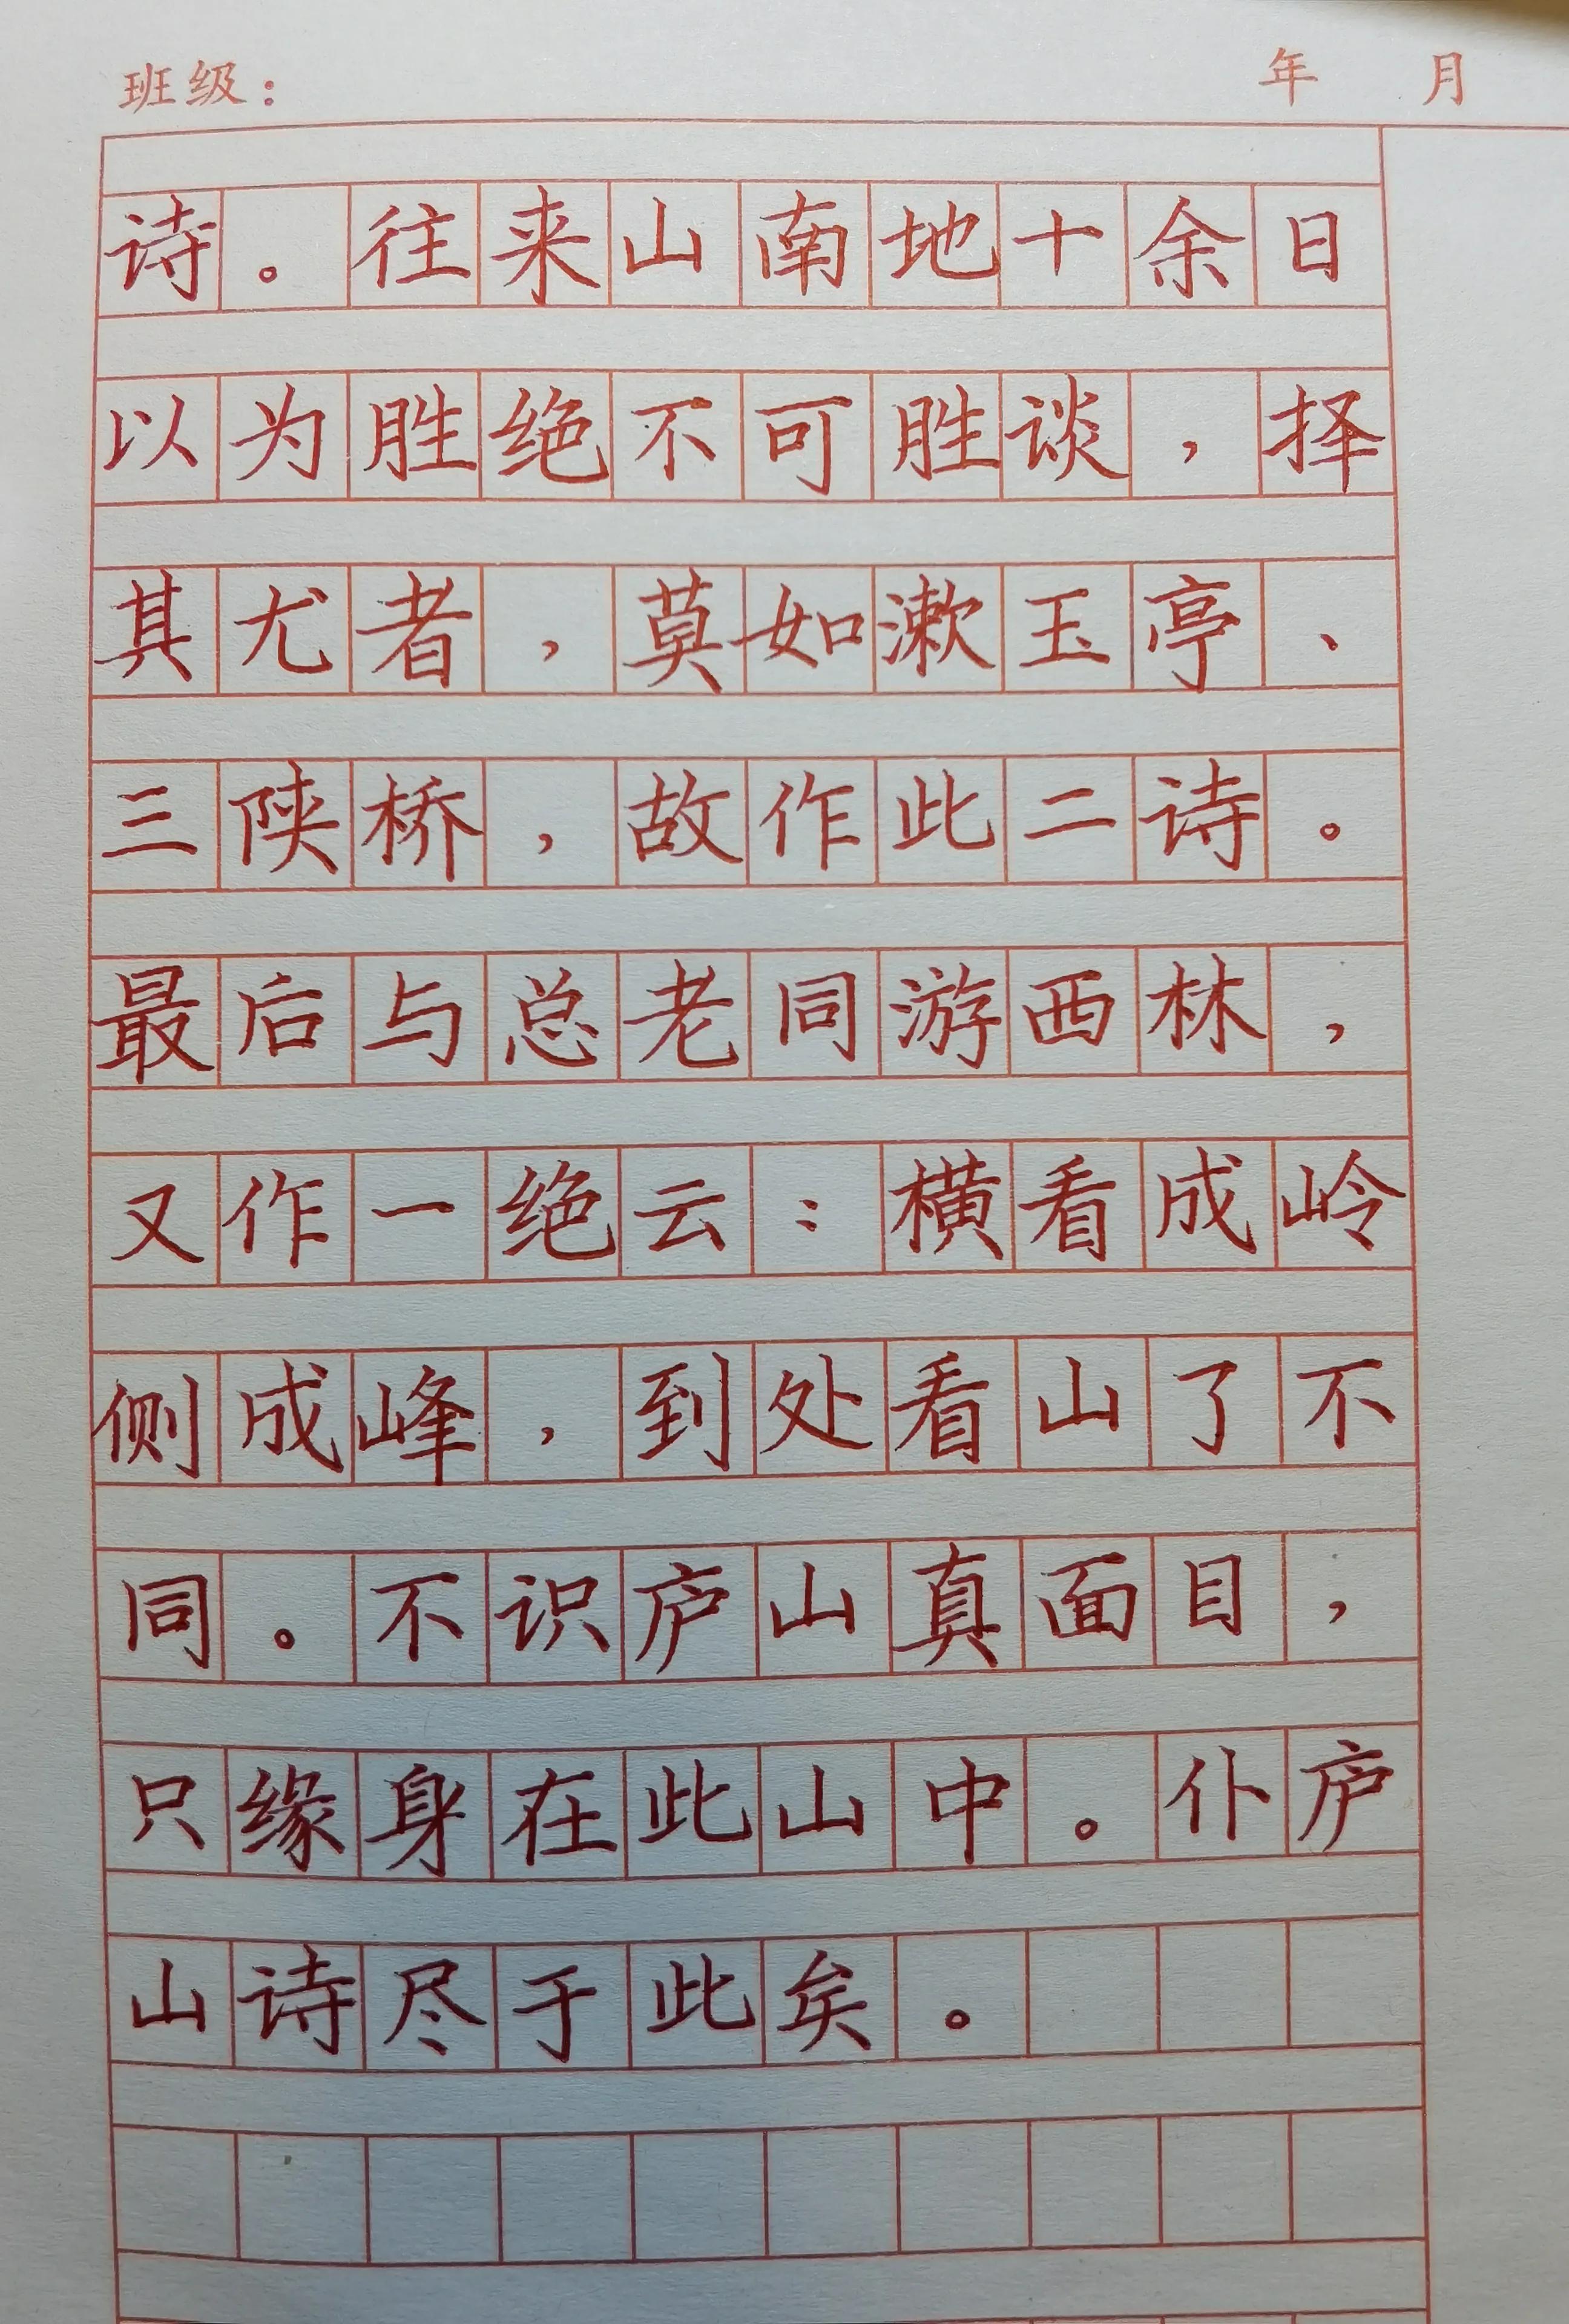 班级： 年 月
诗。往来山南地十余日
以为胜绝不可胜谈，择
其尤者，莫如漱玉亭、
三陕桥，故作此二诗。
最后与总老同游西林，
又作一绝云：横看成岭
侧成峰，到处看山了不
同。不识庐山真面目，
只缘身在此山中。仆庐
山诗尽于此矣。